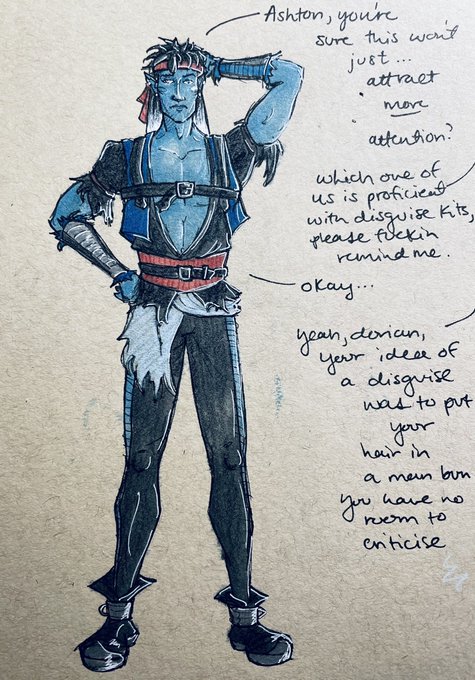 Ashton, you're
sure this won't
just...
attract
more
attention?
which one of
us is proficient
with disguise kits,
please fuckin
remind me.
okay...
yeah, dorian,
your idea of
a disguise
was to put
your
hair in
a man bun
you have no
room to
criticise